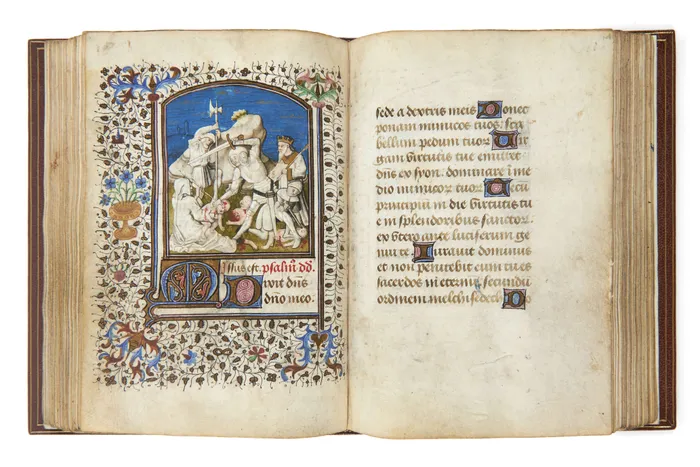 Missus est. psalm9 dd.
Dixit dns
dno meo.
sede a dextris meis Donec
ponam inimicos tuos: sca
bellum pedum tuor Vir
gam virtutis tue emittet
dns ex syon. dominare i me
dio inimicor tuor Tecu
principiu in die virtutis tu
e in splendoribus sanctor.
ex vtero ante luciferum ge
nui te. Iuravit dominus
et non penitebit eum tu es
sacerdos in eternu secundu
ordinem melchisedech Do